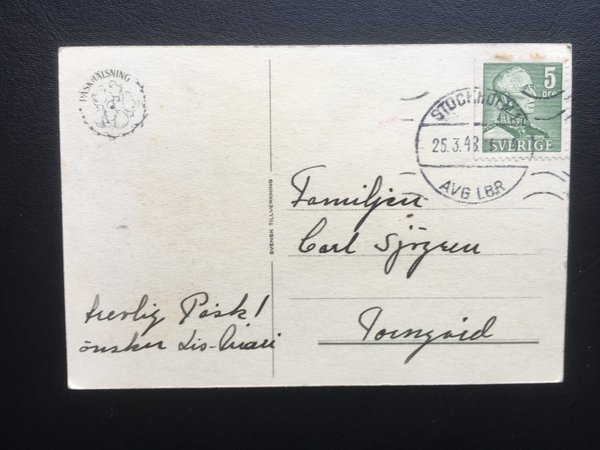 PÅSKHÄLSNING
5
öre
SVERIGE
STOCKHOLM
25.3.48
AVG LBR
SVENSK TILLVERKNING
Familjen
Carl Sjögren
trevlig Påsk!
önsker Lis-Mari